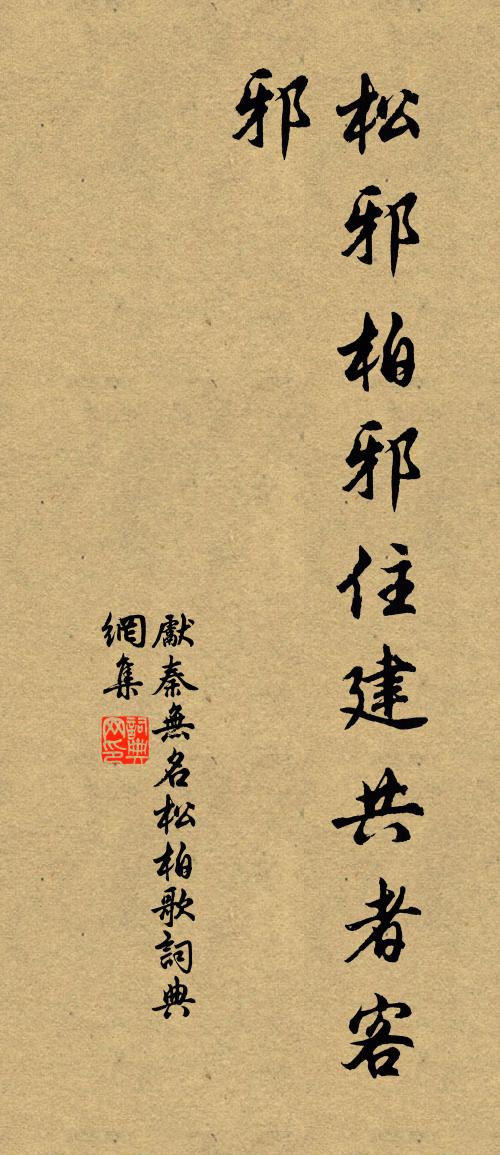 松邪柏邪住建共者客
邪
獻秦無名松柏歌詞典
網集
詞典网印